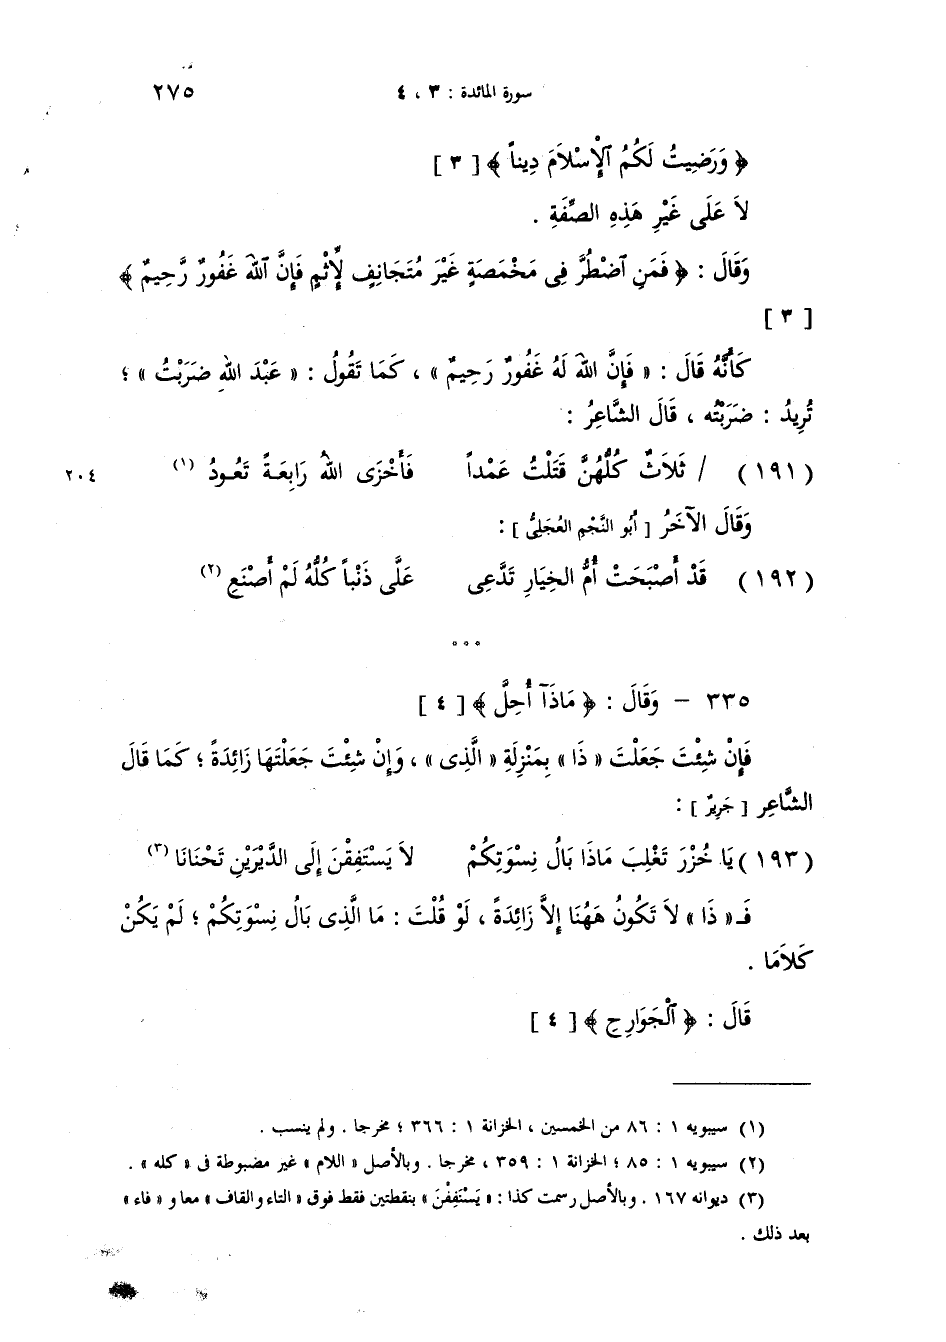 سورة المائدة : ٣ ، ٤ ٢٧٥
﴿ وَرَضِيتُ لَكُمُ ٱلْإِسْلَامَ دِيناً ﴾ [ ٣ ]
لاَ عَلَى غَيْرِ هَذِهِ الصِّفَةِ .
وَقَالَ : ﴿ فَمَنِ ٱضْطُرَّ فِى مَخْمَصَةٍ غَيْرَ مُتَجَانِفٍ لِّإِثْمٍ فَإِنَّ ٱللَّهَ غَفُورٌ رَّحِيمٌ ﴾
[ ٣ ]
كَأَنَّهُ قَالَ : « فَإِنَّ اللهَ لَهُ غَفُورٌ رَحِيمٌ » ، كَمَا تَقُولُ : « عَبْدَ اللهِ ضَرَبْتُ » ؛
تُرِيدُ : ضَرَبْتُه ، قَالَ الشَّاعِرُ :
(١٩١) / ثَلاَثٌ كُلُّهُنَّ قَتَلْتُ عَمْداً فَأَخْزَى اللهُ رَابِعَةً تَعُودُ (١) ٢٠٤
وَقَالَ الآخَرُ [ أَبُو النَّجْمِ العُجَلِىُّ ] :
(١٩٢) قَدْ أَصْبَحَتْ أُمُّ الخِيَارِ تَدَّعِى عَلَّى ذَنْباً كُلُّهُ لَمْ أَصْنَعِ (٢)
° ° °
٣٣٥ – وَقَالَ : ﴿ مَاذَآ أُحِلَّ ﴾ [ ٤ ]
فَإِنْ شِئْتَ جَعَلْتَ « ذَا » بِمَنْزِلَةِ « الَّذِى » ، وَإِنْ شِئْتَ جَعَلْتَهَا زَائِدَةً ؛ كَمَا قَالَ
الشَّاعِر [ جَرِيرٌ ] :
(١٩٣) يَا خُزْرَ تَغْلِبَ مَاذَا بَالُ نِسْوَتِكُمْ لاَ يَسْتَفِقْنَ إِلَى الدَّيْرَيْنِ تَحْنَانَا (٣)
فَـ« ذَا » لاَ تَكُونُ هَهُنَا إِلاَّ زَائِدَةً ، لَوْ قُلْتَ : مَا الَّذِى بَالُ نِسْوَتِكُمْ ؛ لَمْ يَكُنْ
كَلاَمَا .
قَالَ : ﴿ ٱلْجَوَارِحِ ﴾ [ ٤ ]
(١) سيبويه ١ : ٨٦ من الخمسين ، الخزانة ١ : ٣٦٦ ؛ مخرجا . ولم ينسب .
(٢) سيبويه ١ : ٨٥ ؛ الخزانة ١ : ٣٥٩ ، مخرجا . وبالأصل « اللام » غير مضبوطة فى « كله » .
(٣) ديوانه ١٦٧ . وبالأصل رسمت كذا : « يَسْتَفِفْنَ » بنقطتين فقط فوق « التاء والقاف » معا و « فاء »
بعد ذلك .